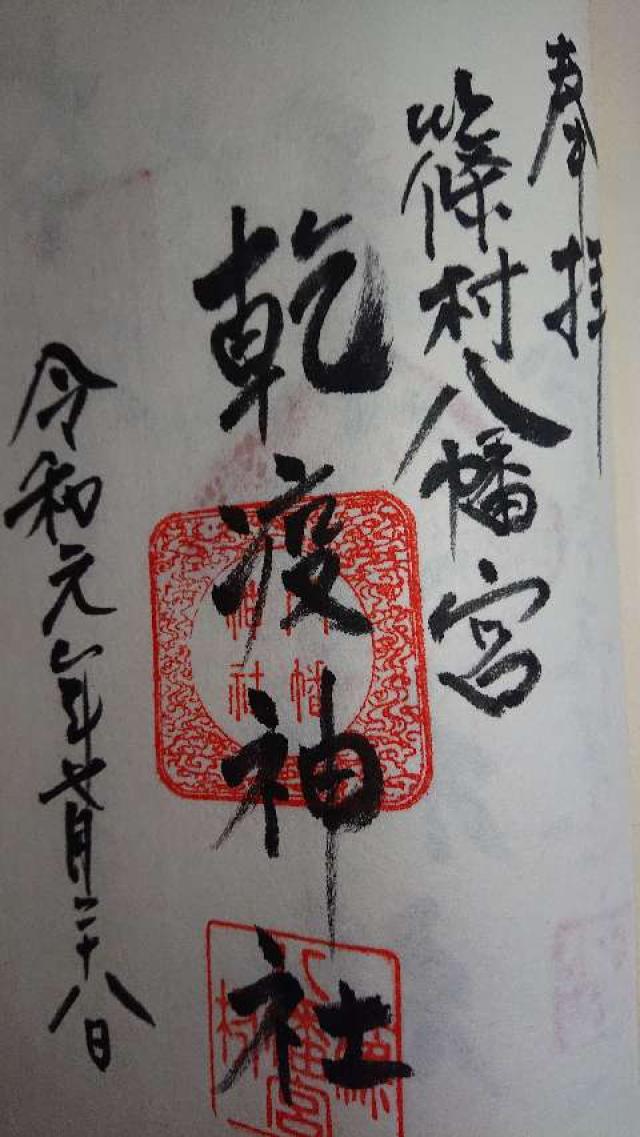 奉拝
篠村八幡宮
乾疫神社
令和元年七月二十八日